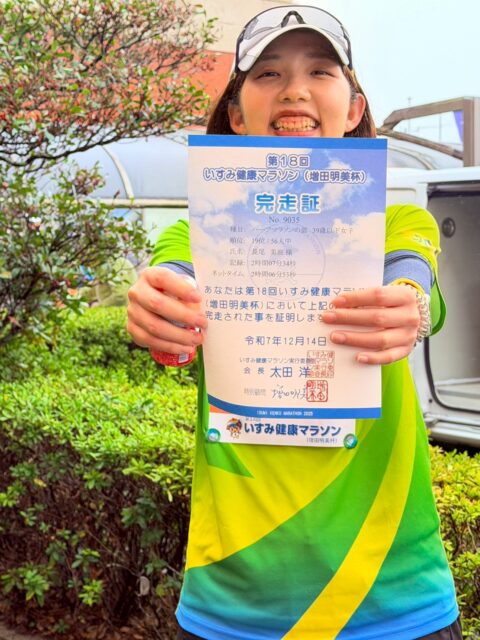 第18回
いすみ健康マラソン(増田明美杯)
完走証
No. 9035
種目 ハーフマラソンの部 39歳以下女子
順位 19位 / 56人中
氏名 長尾 美樹 様
記録 2時間07分34秒
ネットタイム 2時間06分53秒
あなたは第18回いすみ健康マラ
(増田明美杯)において上記の
完走された事を証明しま
令和7年12月14
いすみ健康マラソン実行委員
会長 太田 洋
特別顧問
ISUMI KENKO MARATHON 2025
いすみ健康マラソン
(増田明美杯)